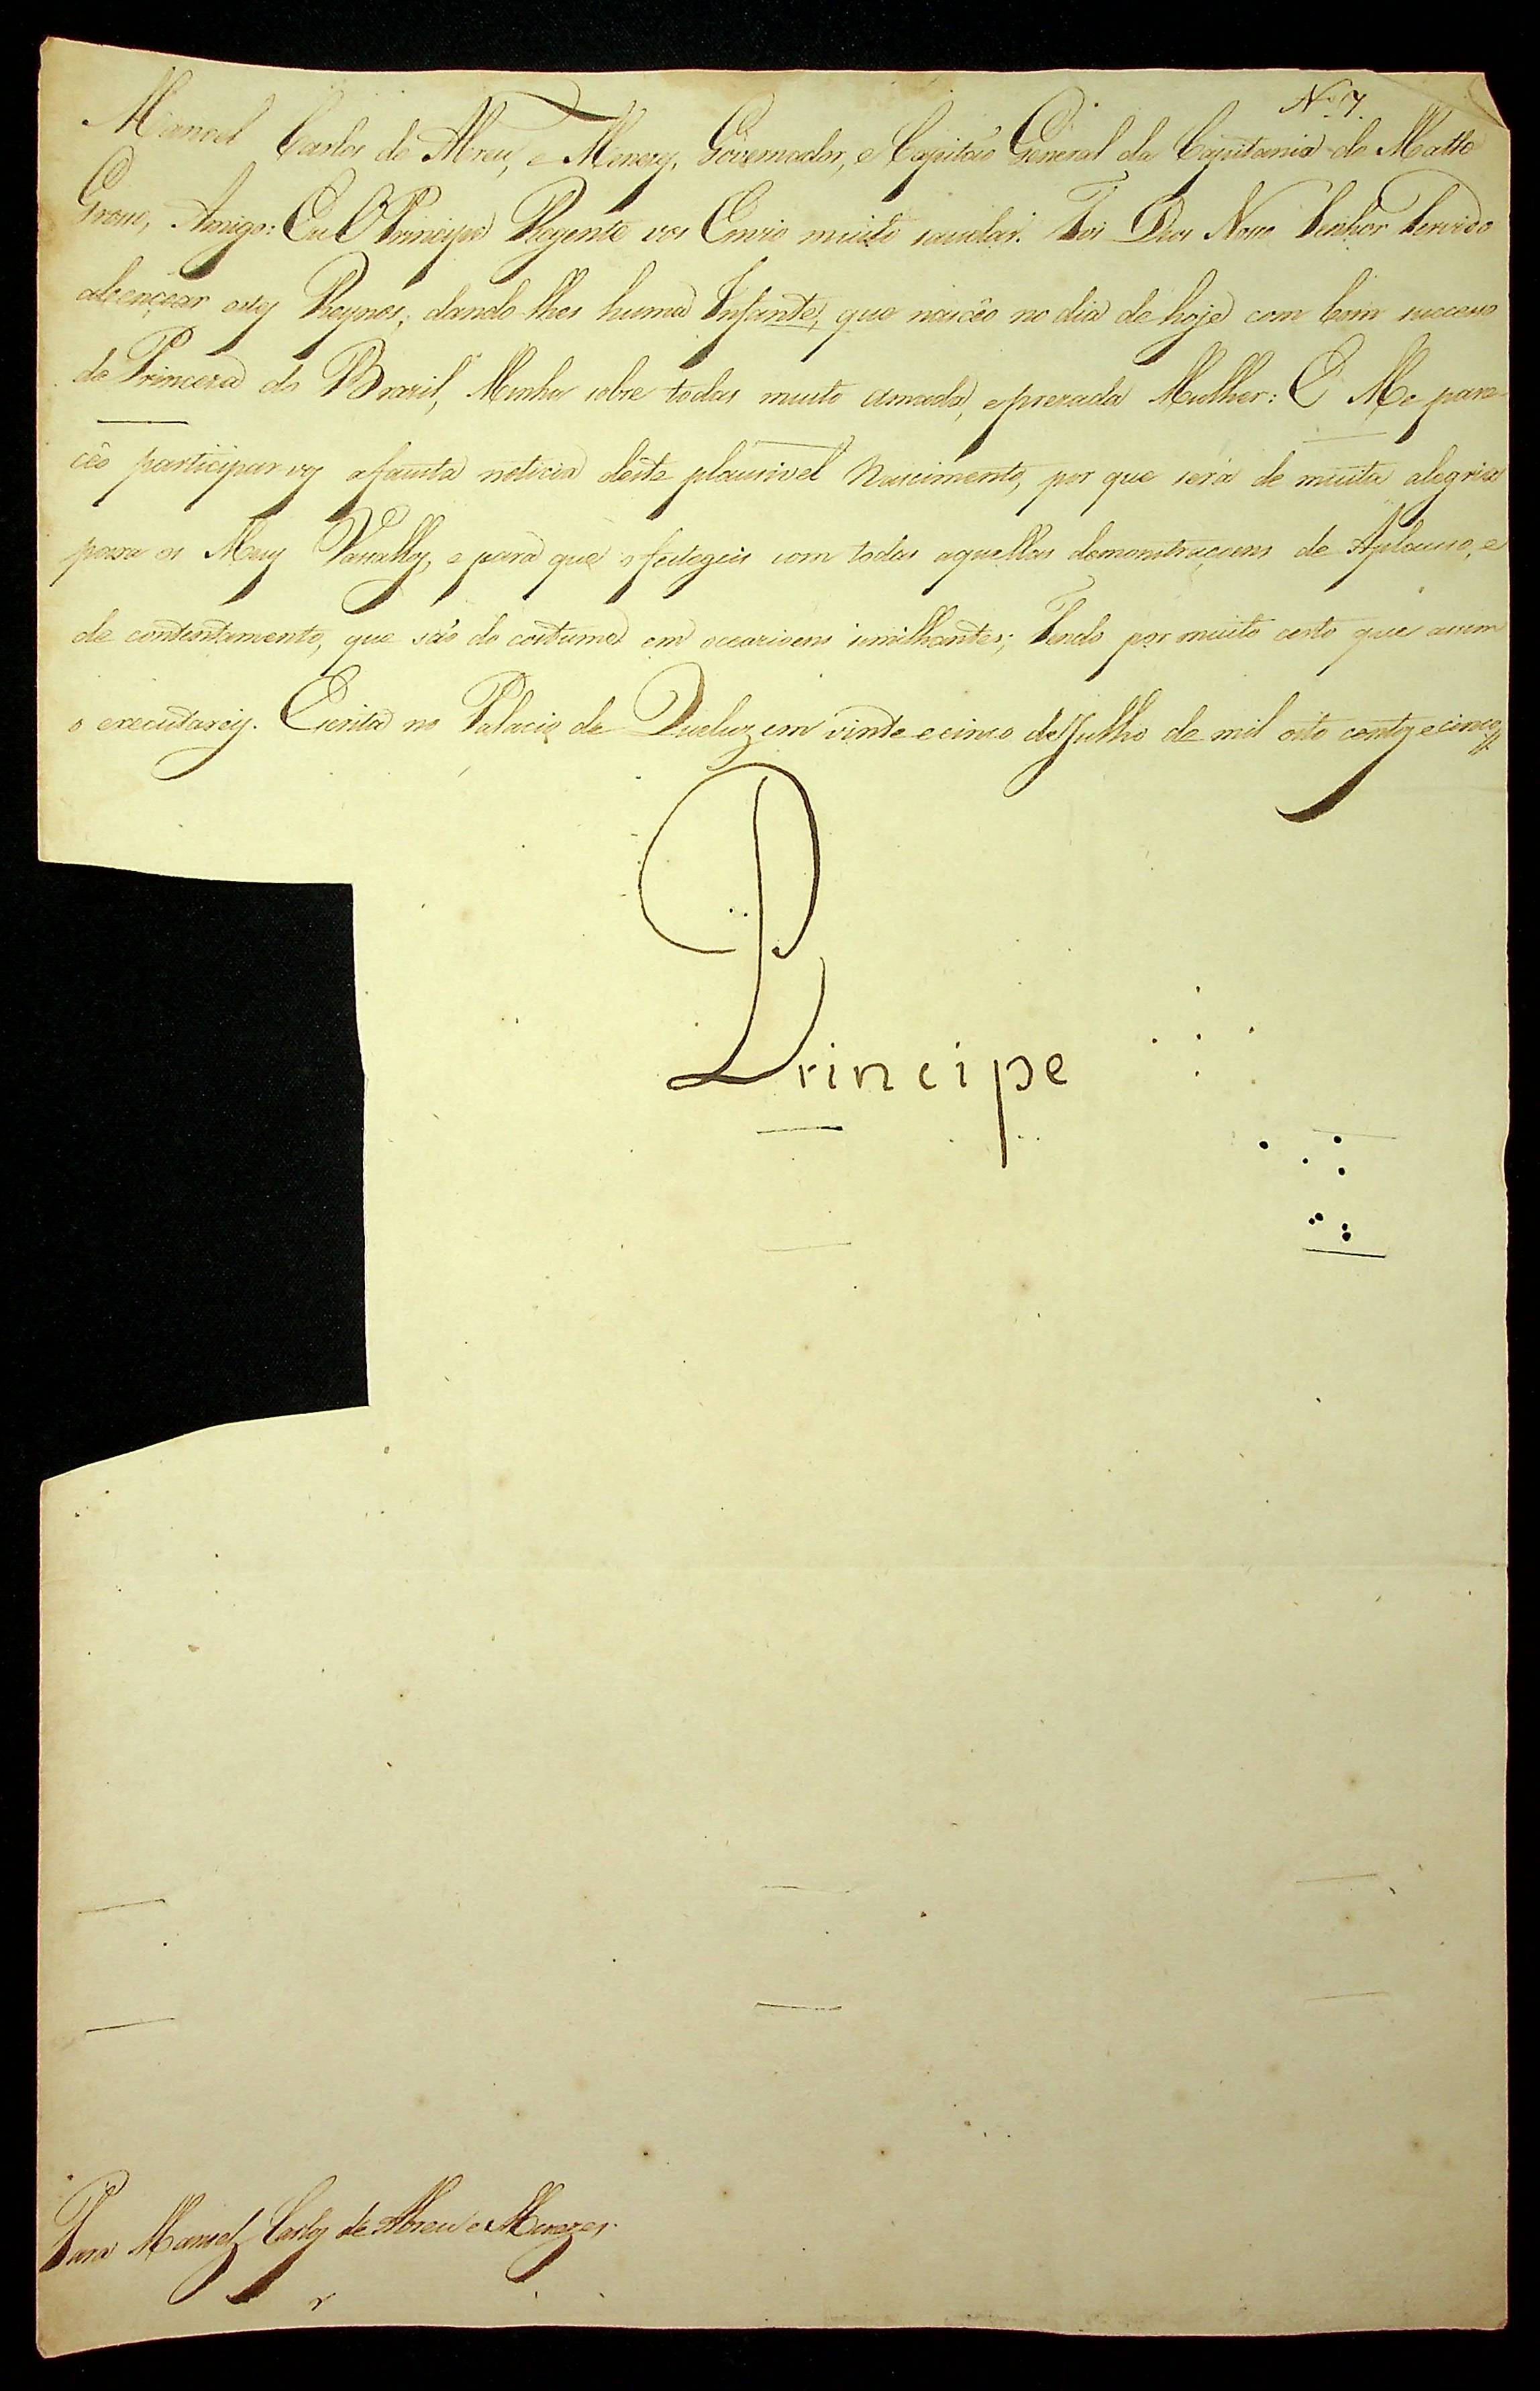 Nº 7.
Manoel Carlos de Abreu, e Menezes, Governador, e Capitaõ General da Capitania de Matto
Grosso, Amigo: Eu O Principe Regente vos Envio muito saudar. Foi Deos Nosso Senhor Servido
abençoar estes Reynos, dando lhes huma Infante, que nasceo no dia de hoje com bom successo
da Princeza do Brazil, Minha sobre todas muito amada, e prezada Mulher: E Me pare-
ceo participar vos a fausta noticia deste plausivel Nascimento, por que será de muita alegria
para os Meus Vassallos, e para que o festegeis com todas aquellas demonstraçoens de Aplauso, e
de contentamento, que saõ do costume em occasioens similhantes; Tendo por muito certo que assim
o executareis. Escrita no Palacio de Queluz em vinte e cinco de Julho de mil oito centos e cinco
Principe
Para Manoel Carlos de Abreu e Menezes.